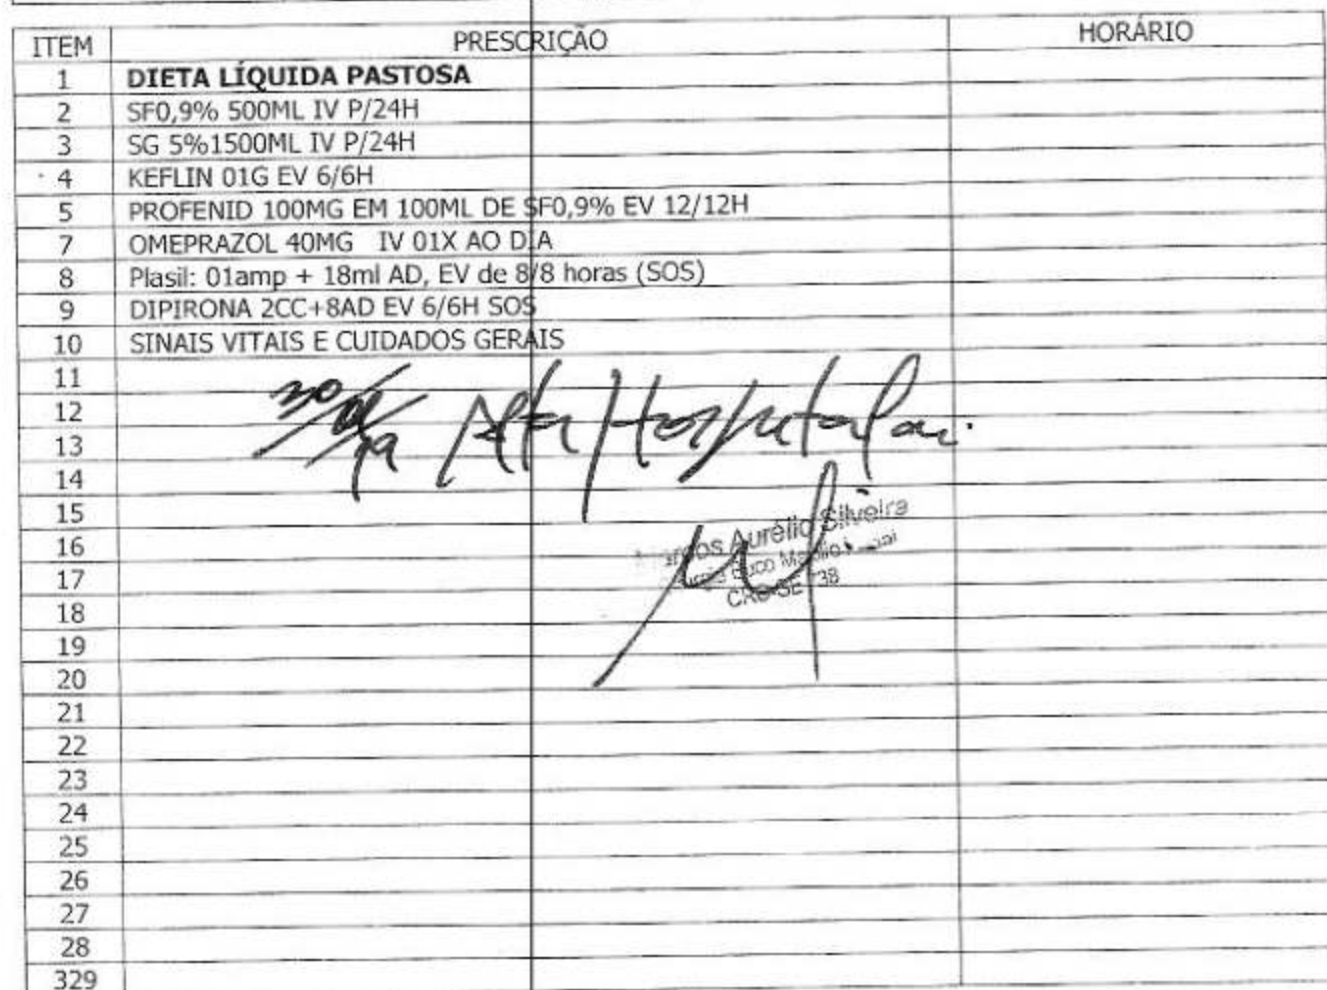 ITEM PRESCRIÇÃO HORÁRIO
1 DIETA LÍQUIDA PASTOSA
2 SF0,9% 500ML IV P/24H
3 SG 5%1500ML IV P/24H
4 KEFLIN 01G EV 6/6H
5 PROFENID 100MG EM 100ML DE SF0,9% EV 12/12H
7 OMEPRAZOL 40MG IV 01X AO DIA
8 Plasil: 01amp + 18ml AD, EV de 8/8 horas (SOS)
9 DIPIRONA 2CC+8AD EV 6/6H SOS
10 SINAIS VITAIS E CUIDADOS GERAIS
11
12 Alta Hospitalar
13
14
15
Aurélio Silveira
16
Buco
17
CRO-SE
18
19
20
21
22
23
24
25
26
27
28
329